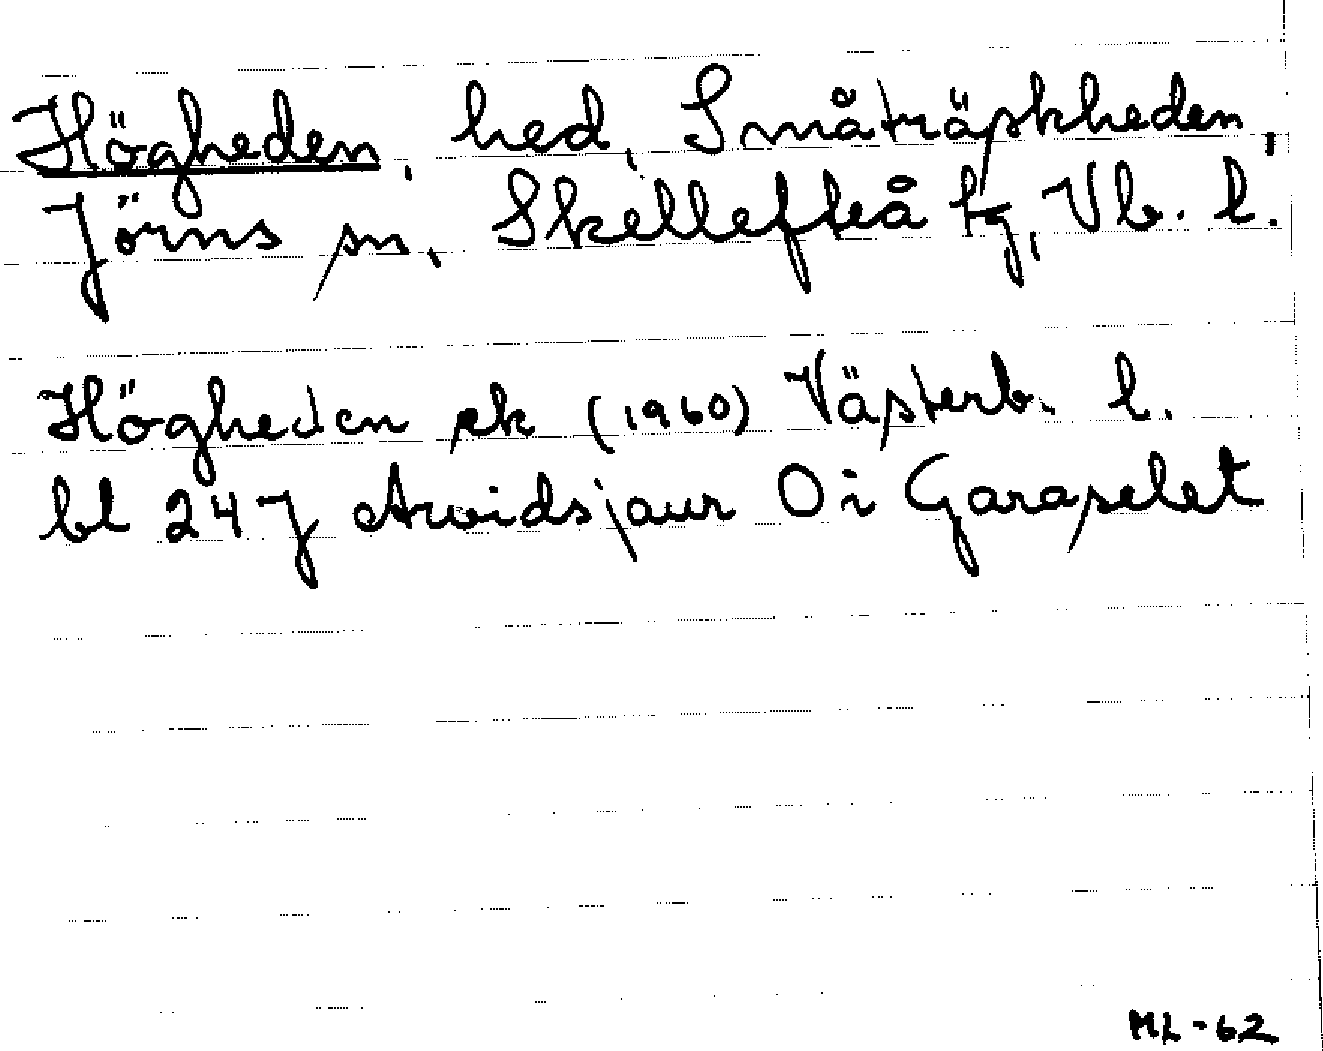 Högheden, hed, Småträskheden,
Jörns sn, Skellefteå tg, Vb. l.
Högheden ek (1960) Västerb. l.
bl 24 J Arvidsjaur Ö i Garaselet
ML-62